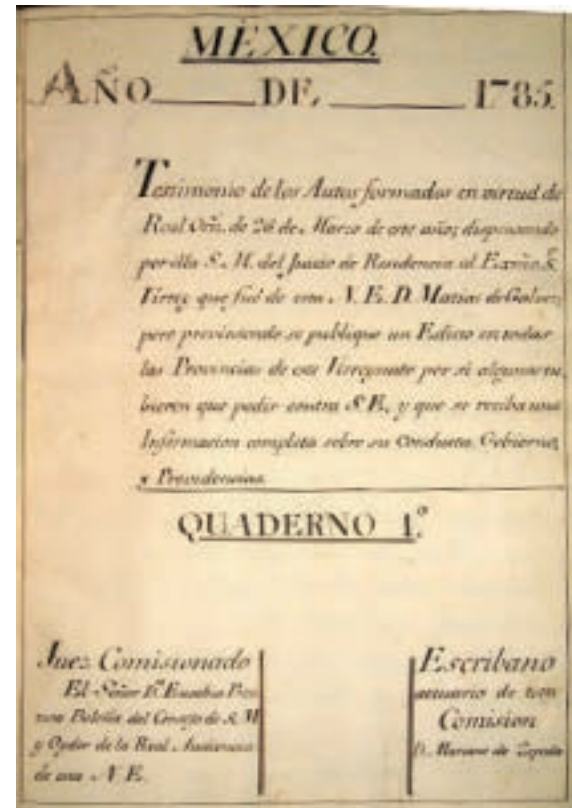 MÉXICO.
AÑO DE 1785.
Testimonio de los Autos formados en virtud de
Real Orñ. de 26 de Marzo de este año; dispensando
por ella S. M. del Juicio de Residencia al Exmô. Sr.
Virrey que fué de esta N. E. D. Matias de Galvez;
pero previniendo se publique un Edicto en todas
las Provincias de este Virreynato por si algunos tu-
bieren que pedir contra S. E. y que se reciba una
Informacion completa sobre su Conducta, Gobierno,
y Providencias.
QUADERNO 1.º
Juez Comisionado
El Señor Dn. Eusebio
Beleña del Consejo de S. M.
y Oydor de la Real Audiencia
de esta N. E.
Escribano
actuario de
Comision
D. Mariano de Zepeda